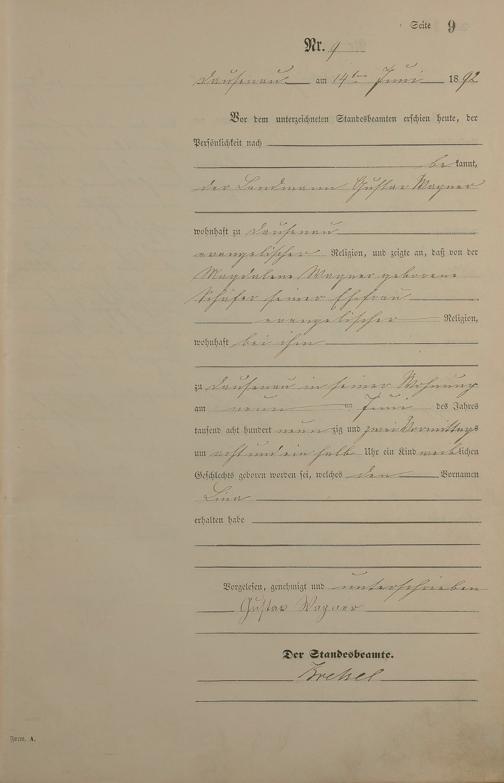 Seite 9
Nr. 9
Dausenau am 14ten Juni 1892
Vor dem unterzeichneten Standesbeamten erschien heute, der
Persönlichkeit nach
be kannt,
der Landmann Gustav Wagner
wohnhaft zu Dausenau
evangelischer Religion, und zeigte an, daß von der
Magdalene Wagner geborene
Schäfer seiner Ehefrau
evangelischer Religion,
wohnhaft bei ihm
zu Dausenau in seiner Wohnung
am neun ten Juni des Jahres
tausend acht hundert neun zig und zwei Vormittags
um acht und ein halb Uhr ein Kind weiblichen
Geschlechts geboren worden sei, welches den Vornamen
Lina
erhalten habe
Vorgelesen, genehmigt und unterschrieben
Gustav Wagner
Der Standesbeamte.
Form. A.